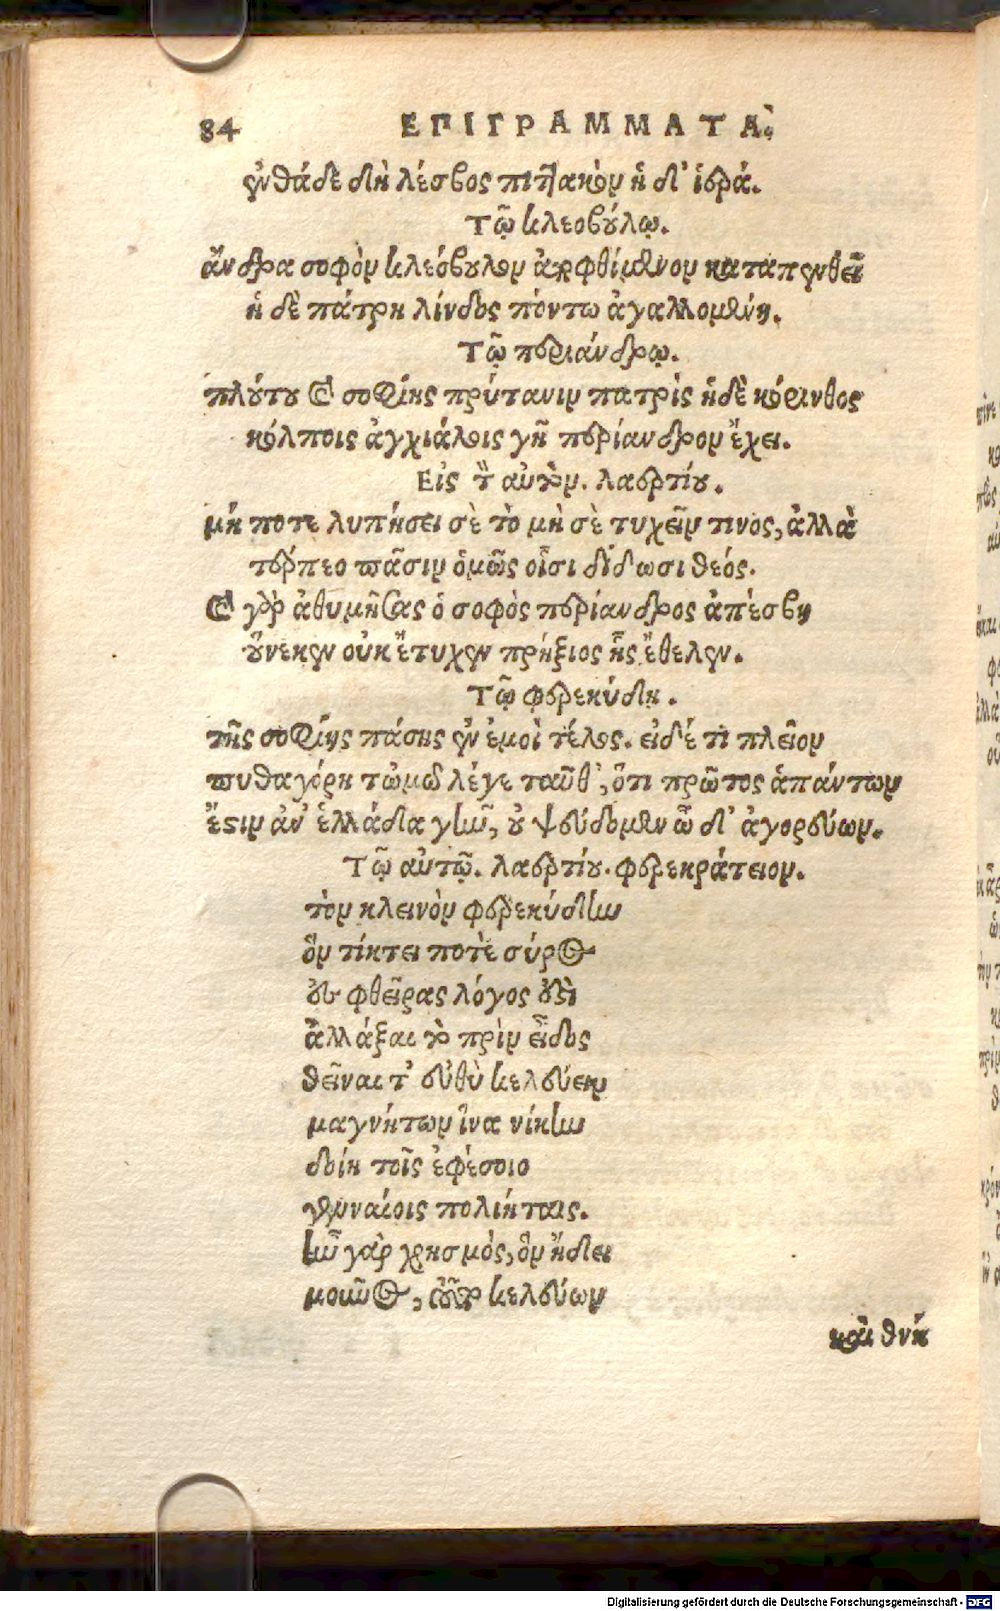 84 ΕΠΙΓΡΑΜΜΑΤΑ.
ἐνθάδε διὴ λέσβος πιττακὸν ἡ δι' ἱερά.
Τῷ κλεοβούλῳ.
ἄνδρα σοφὸν κλεόβουλον ἀποφθίμενον καταπενθεῖ
ἡ δὲ πάτρη λίνδος πόντω ἀγαλλομένη.
Τῷ περιάνδρῳ.
πλούτου καὶ σοφίης πρύτανιν πατρὶς ἡδὲ κόρινθος
κόλποις ἀγχιάλοις γῆ περίανδρον ἔχει.
Εἰς τὸν αὐτὸν. λαερτίου.
μή ποτε λυπήσει σὲ τὸ μὴ σὲ τυχεῖν τινος, ἀλλὰ
τέρπεο πᾶσιν ὁμῶς οἷσι δίδωσι θεός.
καὶ γὰρ ἀθυμήσας ὁ σοφὸς περίανδρος ἀπέσβη
οὕνεκεν οὐκ ἔτυχεν πρήξιος ἧς ἔθελεν.
Τῷ φερεκύδη.
τῆς σοφίης πάσης ἐν ἐμοὶ τέλος. εἰδέ τι πλεῖον
πυθαγόρη τὠμῷ λέγε ταῦθ', ὅτι πρῶτος ἁπάντων
ἔστιν ἀν' ἑλλάδια γῆν, οὐ ψεύδομεν ὧ δι' ἀγορεύων.
Τῷ αὐτῷ. λαερτίου. φερεκράτειον.
τὸν κλεινὸν φερεκύδην
ὃν τίκτει ποτὲ σύρος
φθεῖρας λόγος ἐστὶ
ἀλλάξαι τὸ πρὶν εἶδος
θεῖναι τ' εὐθὺ κελεύειν
μαγνήτων ἵνα νίκην
δοίη τοῖς ἐφέσοιο
γενναίοις πολιήταις.
ἦν γὰρ χρησμός, ὃν ἤδει
μοῦνος, κελεύων
καὶ θνή
Digitalisierung gefördert durch die Deutsche Forschungsgemeinschaft - DFG